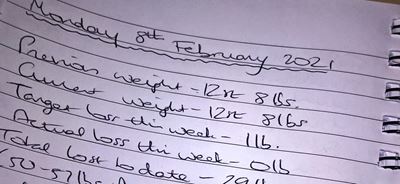 Monday 8th February 2021
Previous weight - 12st 8lbs.
Current weight - 12st 8lbs
Target loss this week - 1lb.
Actual loss this week - 0lb
Total lost to date -